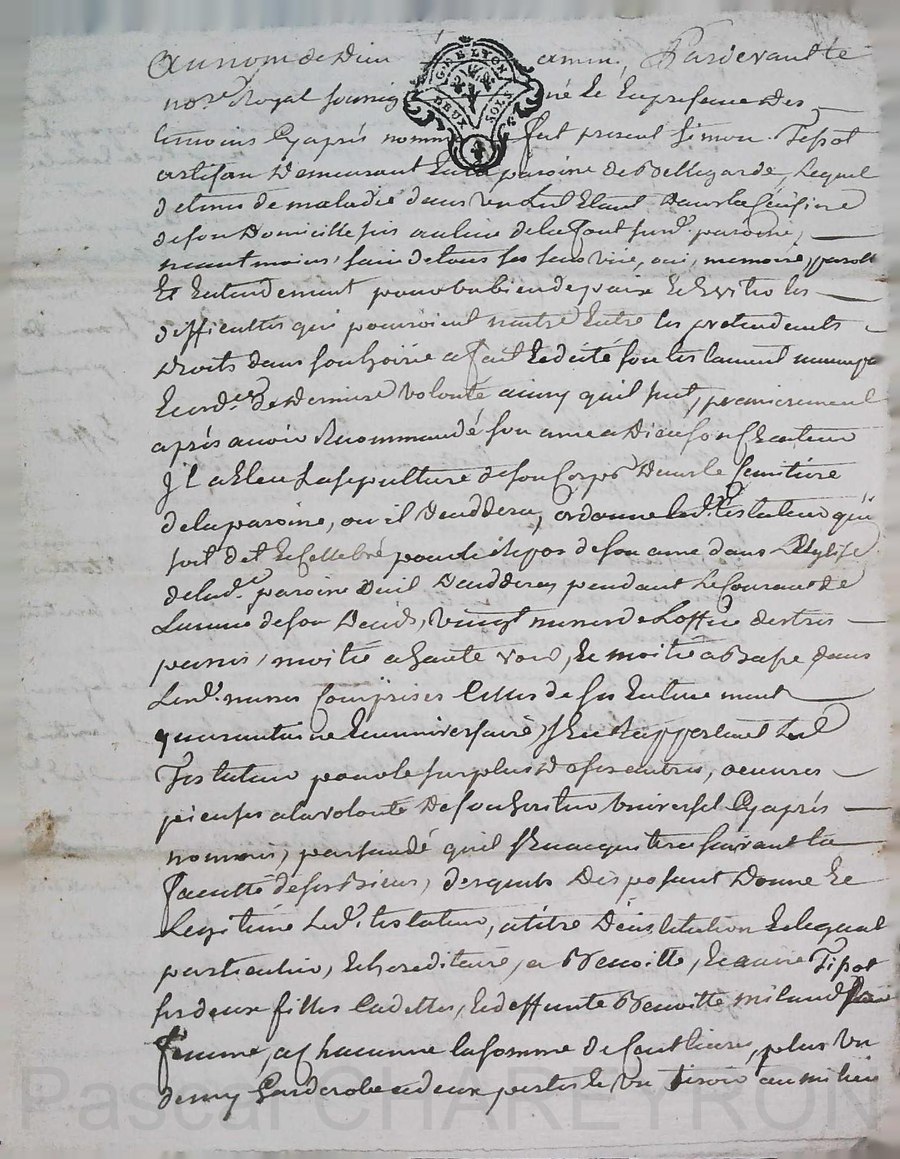 Au nom de Dieu amen. Pardevant le
G. DE LYON
DEUX SOLS
no.re Royal soussig né Et En presence Des
temoins Cy aprés nommé fut present Simon Tissot
artisan Demeurant En la paroisse de Bellegarde, Lequel
detenu de maladie dans un Lit Etant Dans la Cuisine
de son Domicille sis au lieu de la font susd.e paroisse,
neantmoins, sain de tous ses sens vüe, oui, memoire, parolle
Et Entendement pour le bien de paix Et Eviter les
difficultés qui pouroient naitre Entre les pretendents
Droits dans son hoirie a fait Et dicté son testament
Et ord.ce de Derniere Volonté ainsy quil suit, premierement
aprés avoir Recommandé son ame a Dieu son Createur
Jl a Eleu La sepulture de son Corps Dans le Cemitiere
de la paroisse, ou il Deceddera, ordonne led.t testateur quil
soit dit Et Cellebré pour le Repos de son ame dans L'Eglise
de lad.e paroisse Dou il Deceddera, pendant Le Courant de
L'année de son Deceds, vingt messes de L'office des tres
passés, moitié a haute voix, Et moitié a Basse dans
Lesd. messes Comprises Celles de ses Enterrement
quarantaine Et anniversaire, s'En Rapportant Led
Testateur pour le surplus De ses autres, oeuvres
pieuses a la volonté De son heritier Universel Cy aprés
nommé, persuadé quil s'En acquittera suivant la
faculté de ses Biens, desquels Disposant Donne Et
Legitime Led. testateur, a titre D'institution Et legat
particulier, Et hereditaire, a Benoitte, Et autre Tissot
ses deux filles Cadettes, Et deffunte Benoitte milaud sa
femme, a Chacunne la somme de Cent livres, plus un
demy Garderobe a deux portes Et un tiroir au milieu
Pascal CHAREYRON